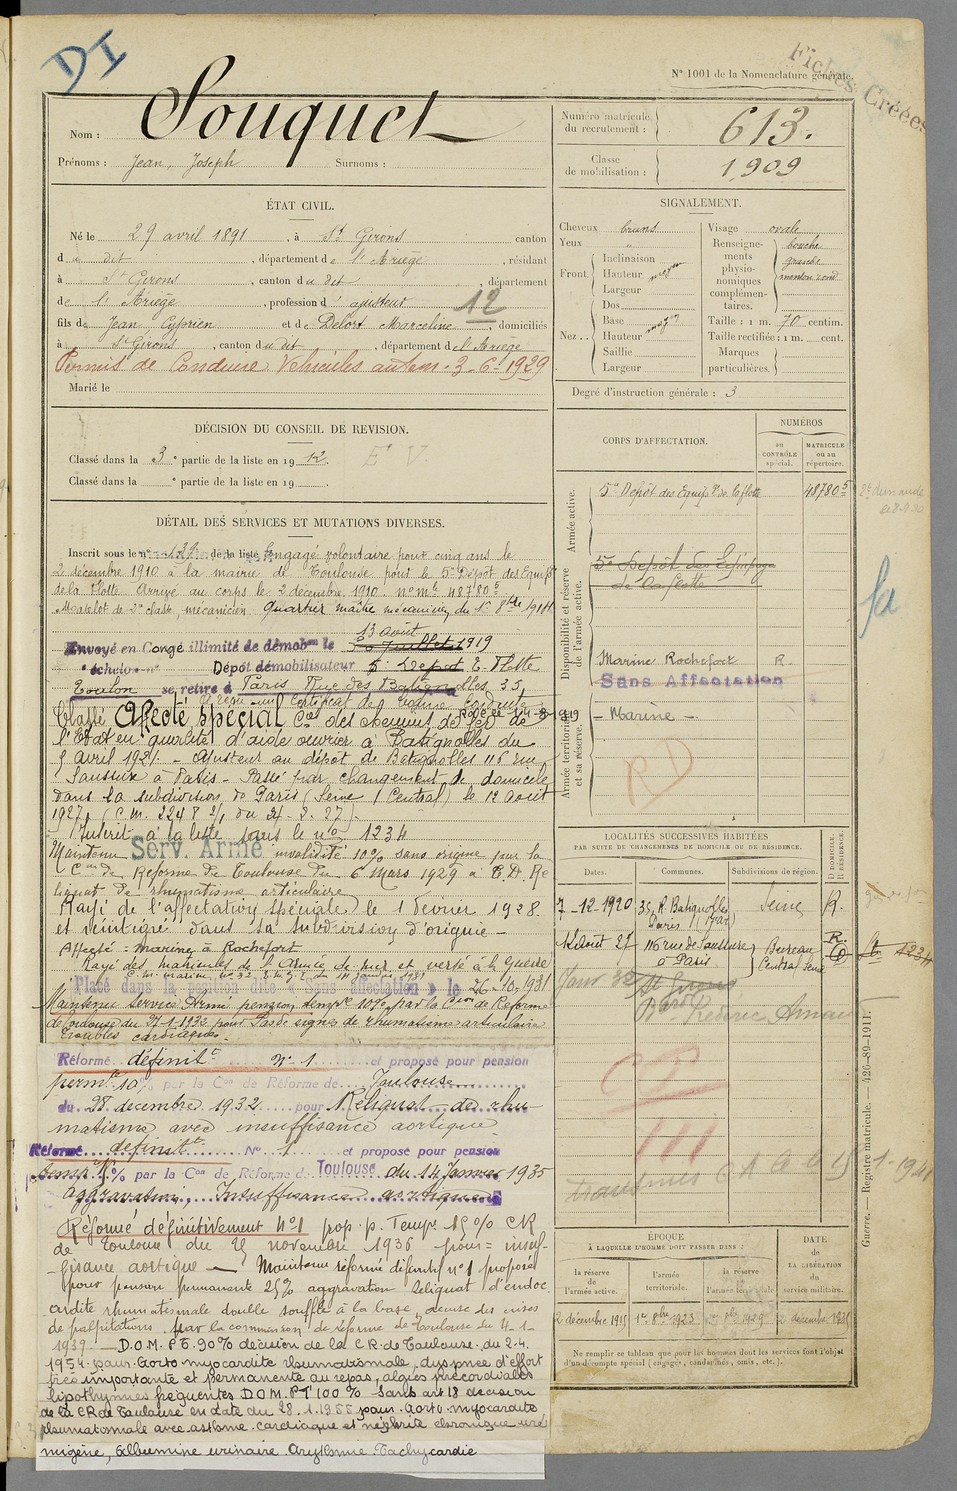 DI
Fiches Créées
N° 1001 de la Nomenclature générale.
Nom : Souquet
Prénoms : Jean, Joseph Surnoms :
Numéro matricule du recrutement : 613.
Classe de mobilisation : 1909
ÉTAT CIVIL.
Né le 29 avril 1891, à St Girons canton
du dit, département de l'Ariège, résidant
à St Girons, canton du dit, département
de l'Ariège, profession d'ajusteur 12
fils de Jean Cyprien et de Delort Marceline, domiciliés
à St Girons, canton du dit, département de l'Ariège
Permis de Conduire Vehicules autom. 3-6-1929
Marié le
SIGNALEMENT.
Cheveux bruns
Yeux "
Front. Inclinaison
Hauteur moyen
Largeur
Nez.. Dos
Base
Hauteur moy
Saillie
Largeur
Visage ovale
Renseignements physionomiques complémentaires. bouche grande menton rond
Taille : 1 m. 70 centim.
Taille rectifiée : 1 m. cent.
Marques particulières.
Degré d'instruction générale : 3
DÉCISION DU CONSEIL DE REVISION.
Classé dans la 3e partie de la liste en 1912. E V.
Classé dans la e partie de la liste en 19 .
DÉTAIL DES SERVICES ET MUTATIONS DIVERSES.
Inscrit sous le n° 132 de la liste Engagé volontaire pour cinq ans le
2 décembre 1910 à la mairie de Toulouse pour le 5e Dépôt des Equip
de la Flotte. Arrivé au corps le 2 décembre 1910. n° mle 48780 5
Matelot de 2e classe, mécanicien. Quartier maître mécanicien du 1er 8bre 1914
13 août
Envoyé en Congé illimité de démobon le juillet 1919
échelon n° Dépôt démobilisateur 5e Dépot E. Flotte
Toulon se retire à Paris Rue des Batignolles 35,
A reçu un Certificat de Bonne Conduite
Classé Affecté spécial Cie des chemins de fer de
l'Etat en qualité d'aide ouvrier à Batignolles du
avril 1921. - Ajusteur au dépôt de Batignolles 116 rue
Saussure à Paris - Passé par changement de domicile
dans la subdivision de Paris (Seine / Central) le 12 Août
1927,
Inscrit à la liste sous le n° 1234
Maintenu Serv. Armé invalidité 10% sans origine par la
Con de Reforme de Toulouse du 6 Mars 1929
liquat de rhumatisme articulaire
Rayé de l'affectation spéciale le 1 février 1928.
et réintégré dans sa subdivision d'origine -
Affecté : marine à Rochefort
Rayé des matricules de l'Armée de mer et versé à la Guerre
Placé dans la position dite « Sans affectation » le 26-10-1931
Maintenu Service Armé pension tempre 10% par la Con de Reforme
de Toulouse du 27-1-1932 pour Pas de signes de rhumatisme articulaire
Troubles cardiaques.
Réformé définitt N° 1 et proposé pour pension
permte 10% par la Con de Réforme de Toulouse
du 28 decembre 1932 pour Reliquat de rhu
matisme avec insuffisance aortique
Réformé définitt N° 1 et proposé pour pension
% par la Con de Réforme de Toulouse du 14 Janvier 1935
aggravation, Insuffisance aortique
Réformé définitivement N°1 prop. p. Tempre 15% CR
de Toulouse du novembre 1936 pour = insuf-
fisance aortique — Maintenu réformé définitif n°1 proposé
pour pension permanente 25% aggravation Reliquat d'endoc
cardite rhumatismale double souffle à la base, accuse des crises
de palpitations, par la commission de réforme de Toulouse du 4-1-
1939. — D.O.M. P.T. 90% décision de la C.R. de Toulouse du 2.4.
1954 pour Aorto myocardite rhumatismale, dyspnée d'effort
très importante et permanente au repos, algies précordiales
lipothymies fréquentes D.O.M. PT 100% Sans art 18 décision
de la CR de Toulouse en date du 28.1.1955 pour Aorto myocardite
rhumatismale avec asthme cardiaque et néphrite chronique uré
migène, Albumine urinaire Arythmie Tachycardie
CORPS D'AFFECTATION.
NUMÉROS
au CONTRÔLE spécial.
MATRICULE ou au répertoire.
Armée active.
5e Dépôt des Equip. de la flotte 48780 5
2e demande
Disponibilité et réserve de l'armée active.
5e Dépôt des Equipages de la flotte
Marine Rochefort R.
Sans Affectation
Armée territoriale et sa réserve.
- Marine -
RD
LOCALITÉS SUCCESSIVES HABITÉES
PAR SUITE DE CHANGEMENTS DE DOMICILE OU DE RÉSIDENCE.
Dates. Communes. Subdivisions de région. D DOMICILE. R RÉSIDENCE.
7-12-1920 35, R. Batignolles Paris Seine R.
12 Août 27 116 rue de Saussure à Paris Bureau Central Seine R. D 1234
Janv 32 St Girons
CS
111
transmis
ÉPOQUE
À LAQUELLE L'HOMME DOIT PASSER DANS :
la réserve de l'armée active. l'armée territoriale. la réserve de l'armée territoriale
DATE de LA LIBÉRATION du service militaire.
2 décembre 1915 1er 8bre 1923 2 décembre 1935
Ne remplir ce tableau que pour les hommes dont les services font l'objet
d'un décompte spécial (engagé, condamnés, omis, etc.).
Guerre. — Registre matricule. — 426-89-1911.